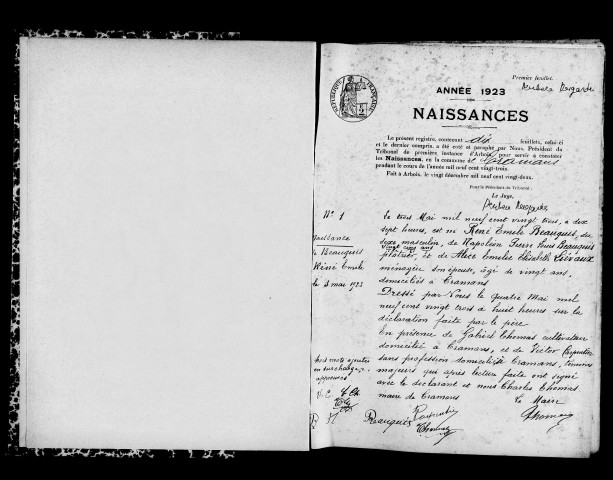 Premier feuillet.
RÉPUBLIQUE FRANÇAISE
ANNÉE 1923
NAISSANCES
Le présent registre, contenant dix feuillets, celui-ci
et le dernier compris, a été coté et paraphé par Nous, Président du
Tribunal de première instance d'Arbois, pour servir à constater
les Naissances, en la commune de Cramans
pendant le cours de l'année mil neuf cent vingt-trois.
Fait à Arbois, le vingt décembre mil neuf cent vingt-deux.
Pour le Président du Tribunal :
Le Juge,
N° 1
Naissance
Beauquis
René Emile
le 3 mai 1923
Le trois Mai mil neuf cent vingt trois, à dix
sept heures, est né René Emile Beauquis, du
sexe masculin, de Napoléon Pierre Beauquis
vingt ans
plâtrier, et de Alice Emelie Elisabeth
ménagère son épouse, âgé de vingt ans,
domiciliés à Cramans
Dressé par Nous le quatre Mai mil
neuf cent vingt trois à huit heures sur la
déclaration faite par le père
En présence de Gabriel Thomas cultivateur
domicilié à Cramans, et de Victor Carpentier
sans profession domicilié à Cramans, témoins
majeurs qui après lecture faite ont signé
avec le déclarant et nous Charles Thomas
maire de Cramans
Le Maire
mots ajoutés
en surcharge
approuvés
Beauquis
Thomas
Thomas